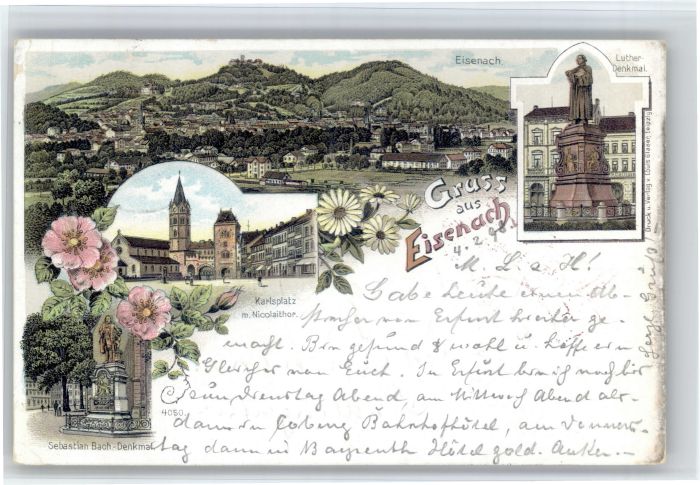 Eisenach.
Luther-
Denkmal.
Druck u. Verlag v. Louis Glaser, Leipzig
Gruss
aus
Eisenach.
4. 2. 98.
Karlsplatz
m. Nicolaithor.
4050
Sebastian Bach-Denkmal.
M. L. a. H!
Habe heute einen Ab-
stecher von Erfurt hierher ge-
macht. Bin gesund & wohl u. hoffe ein
Gleiches von Euch. In Erfurt bin ich noch bis
zum Dienstag Abend, am Mittwoch Abend als-
dann in Coburg Bahnhofhôtel, am Donners-
tag dann in Bayreuth Hôtel gold. Anker.-
Herzl. Grüße